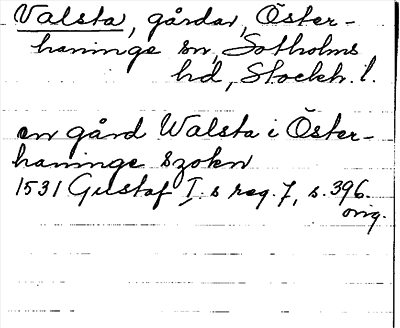 Valsta, gårdar, Öster-
haninge sn, Sotholms
hd, Stockh. l.
en gård Walsta i Öster-
haninge szokn
1531 Gustaf I:s reg. 7, s. 396.
orig.